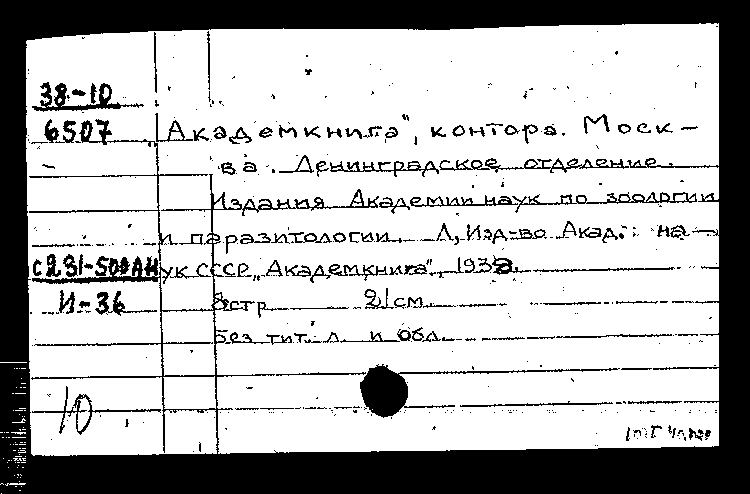 38-10
6507
„Академкнига", контора. Моск-
ва. Ленинградское отделение.
Издания Академии наук по зоологии
и паразитологии. Л, Изд-во Акад. на-
ук СССР, „Академкнига", 1938.
С231-500АН
И-36
8стр 21см.
Без тит. л. и обл.
10